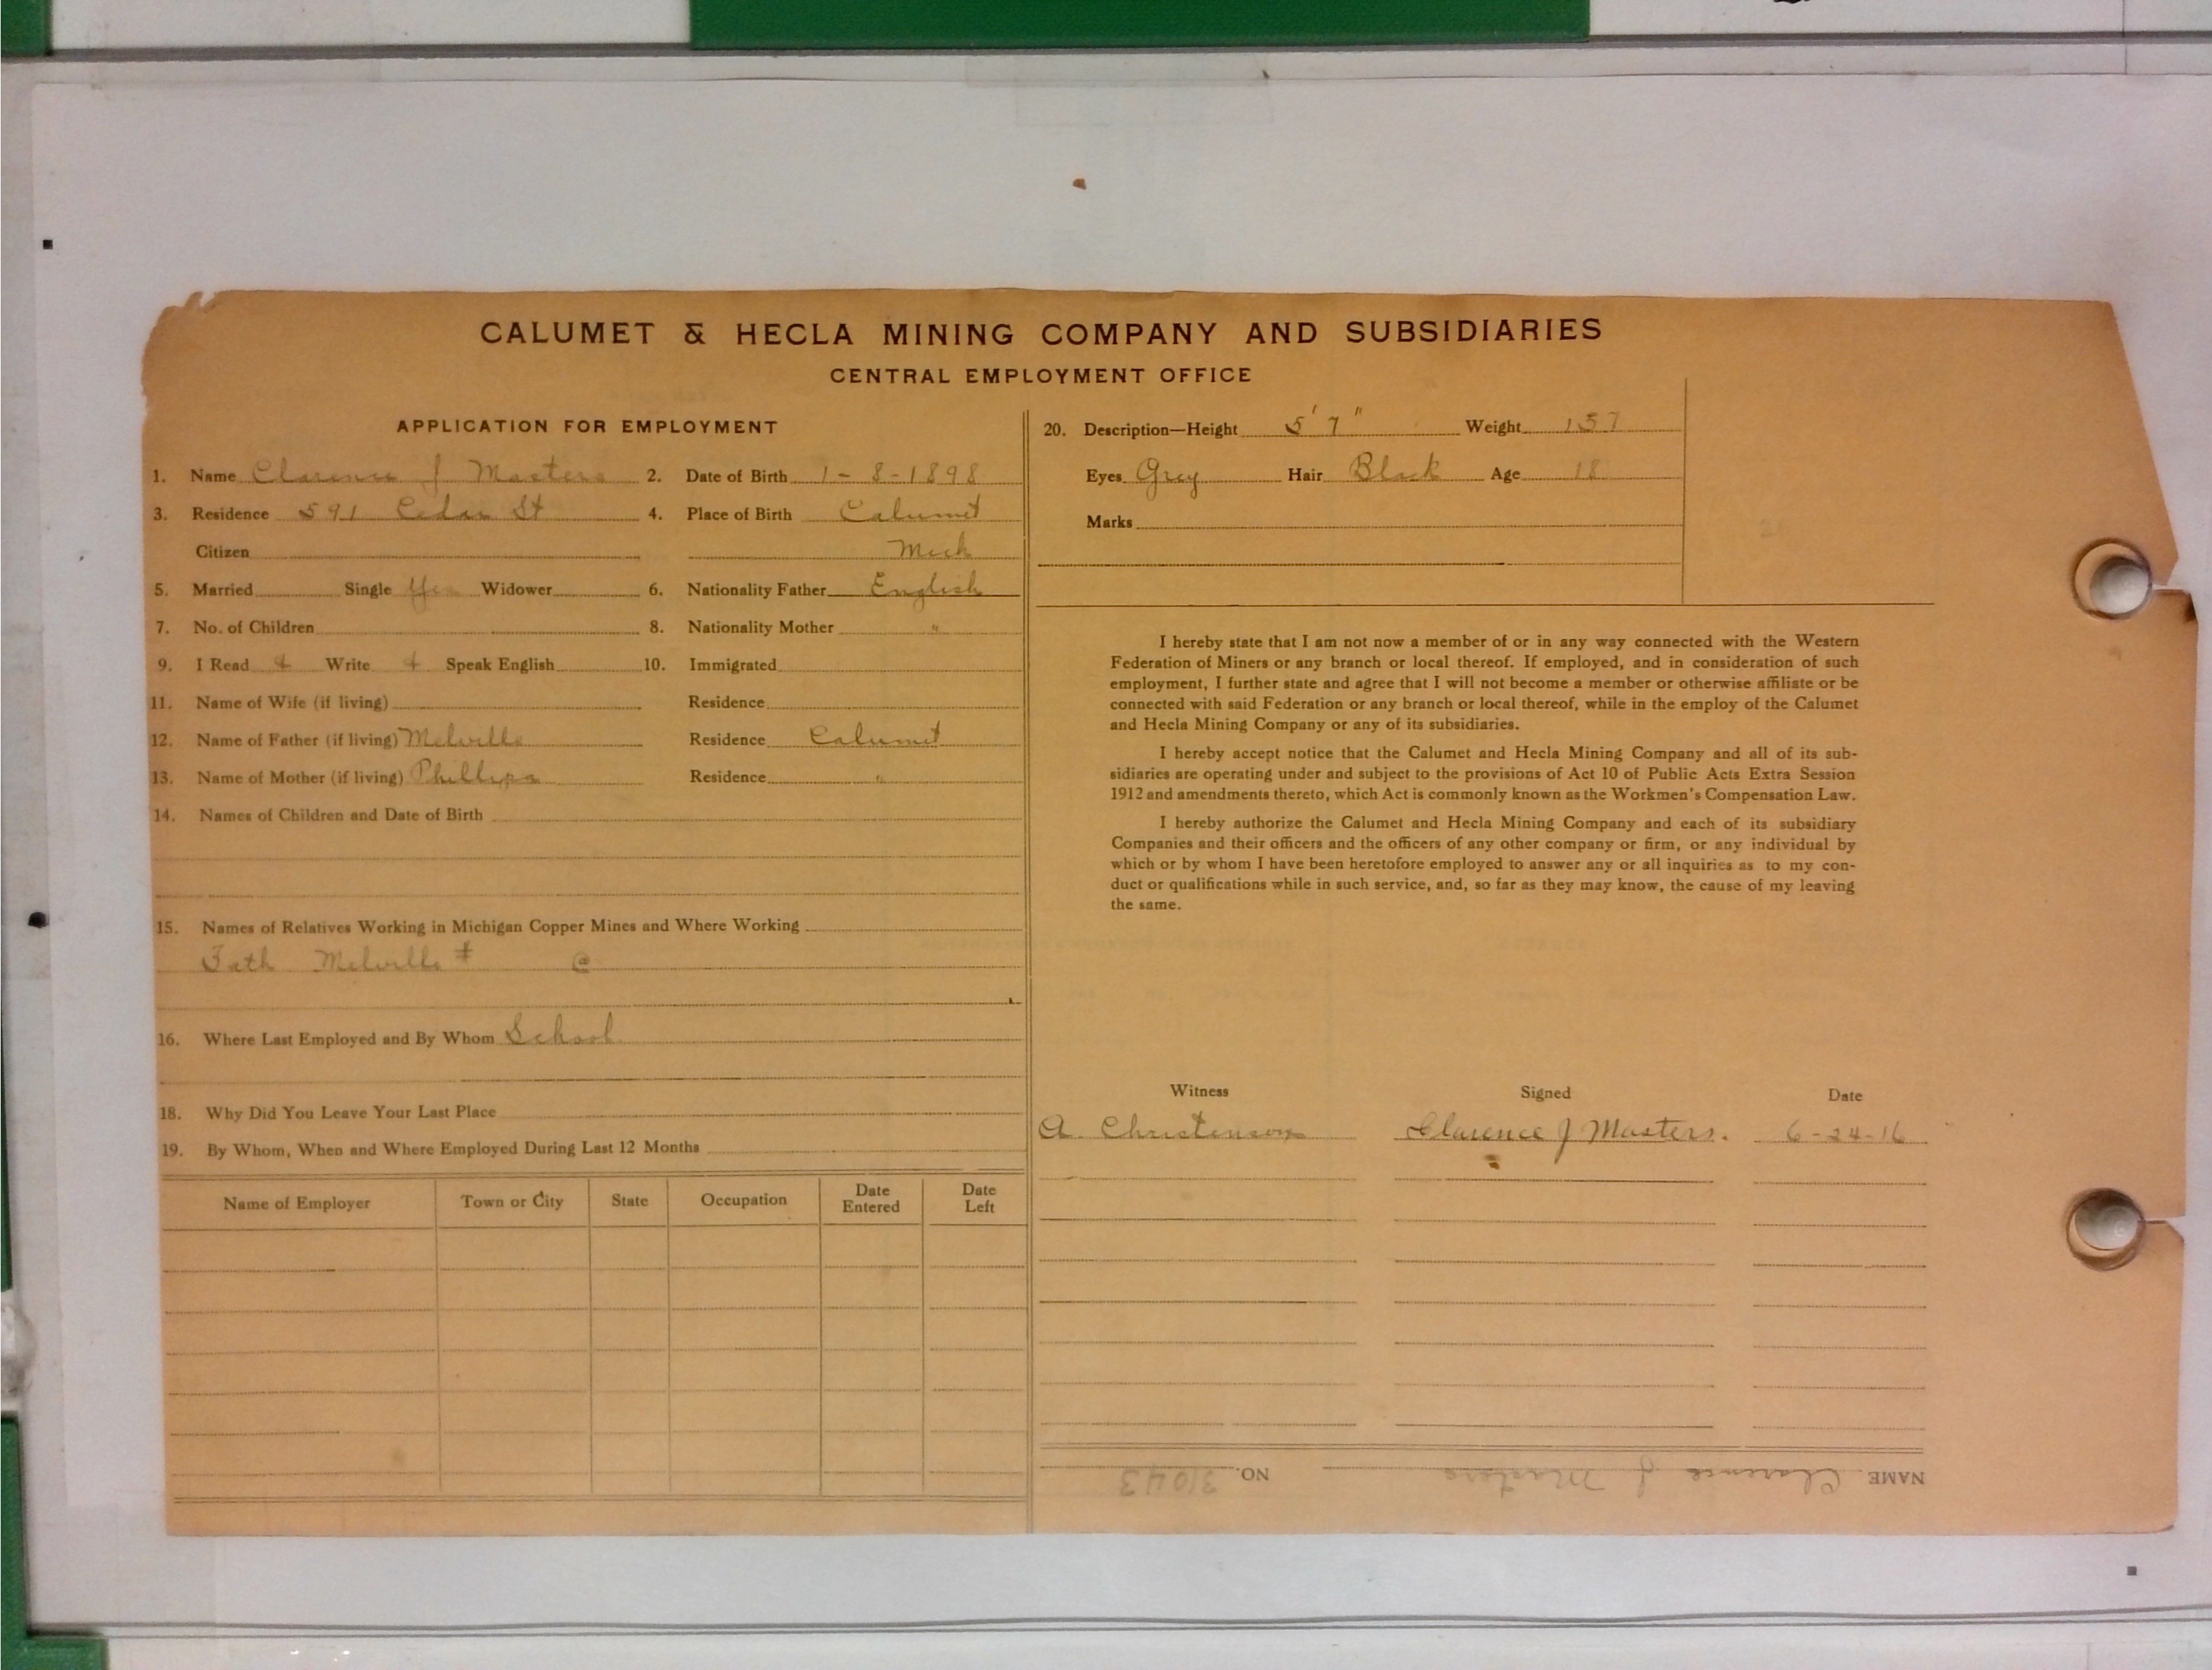 CALUMET & HECLA MINING COMPANY AND SUBSIDIARIES
CENTRAL EMPLOYMENT OFFICE
APPLICATION FOR EMPLOYMENT
1. Name Clarence J Masters 2. Date of Birth 1-8-1898
3. Residence 591 Cedar St 4. Place of Birth Calumet
Citizen Mich
5. Married Single Yes Widower 6. Nationality Father English
7. No. of Children 8. Nationality Mother "
9. I Read & Write & Speak English 10. Immigrated
11. Name of Wife (if living) Residence
12. Name of Father (if living) Melville Residence Calumet
13. Name of Mother (if living) Phillipa Residence "
14. Names of Children and Date of Birth
15. Names of Relatives Working in Michigan Copper Mines and Where Working
Fath Melville #
16. Where Last Employed and By Whom School
18. Why Did You Leave Your Last Place
19. By Whom, When and Where Employed During Last 12 Months
Name of Employer Town or City State Occupation Date Entered Date Left
20. Description—Height 5' 7" Weight 137
Eyes Grey Hair Black Age 18
Marks
I hereby state that I am not now a member of or in any way connected with the Western
Federation of Miners or any branch or local thereof. If employed, and in consideration of such
employment, I further state and agree that I will not become a member or otherwise affiliate or be
connected with said Federation or any branch or local thereof, while in the employ of the Calumet
and Hecla Mining Company or any of its subsidiaries.
I hereby accept notice that the Calumet and Hecla Mining Company and all of its sub-
sidiaries are operating under and subject to the provisions of Act 10 of Public Acts Extra Session
1912 and amendments thereto, which Act is commonly known as the Workmen's Compensation Law.
I hereby authorize the Calumet and Hecla Mining Company and each of its subsidiary
Companies and their officers and the officers of any other company or firm, or any individual by
which or by whom I have been heretofore employed to answer any or all inquiries as to my con-
duct or qualifications while in such service, and, so far as they may know, the cause of my leaving
the same.
Witness Signed Date
A. Christenson Clarence J Masters. 6-24-16
NAME Clarence J Masters NO. 31043